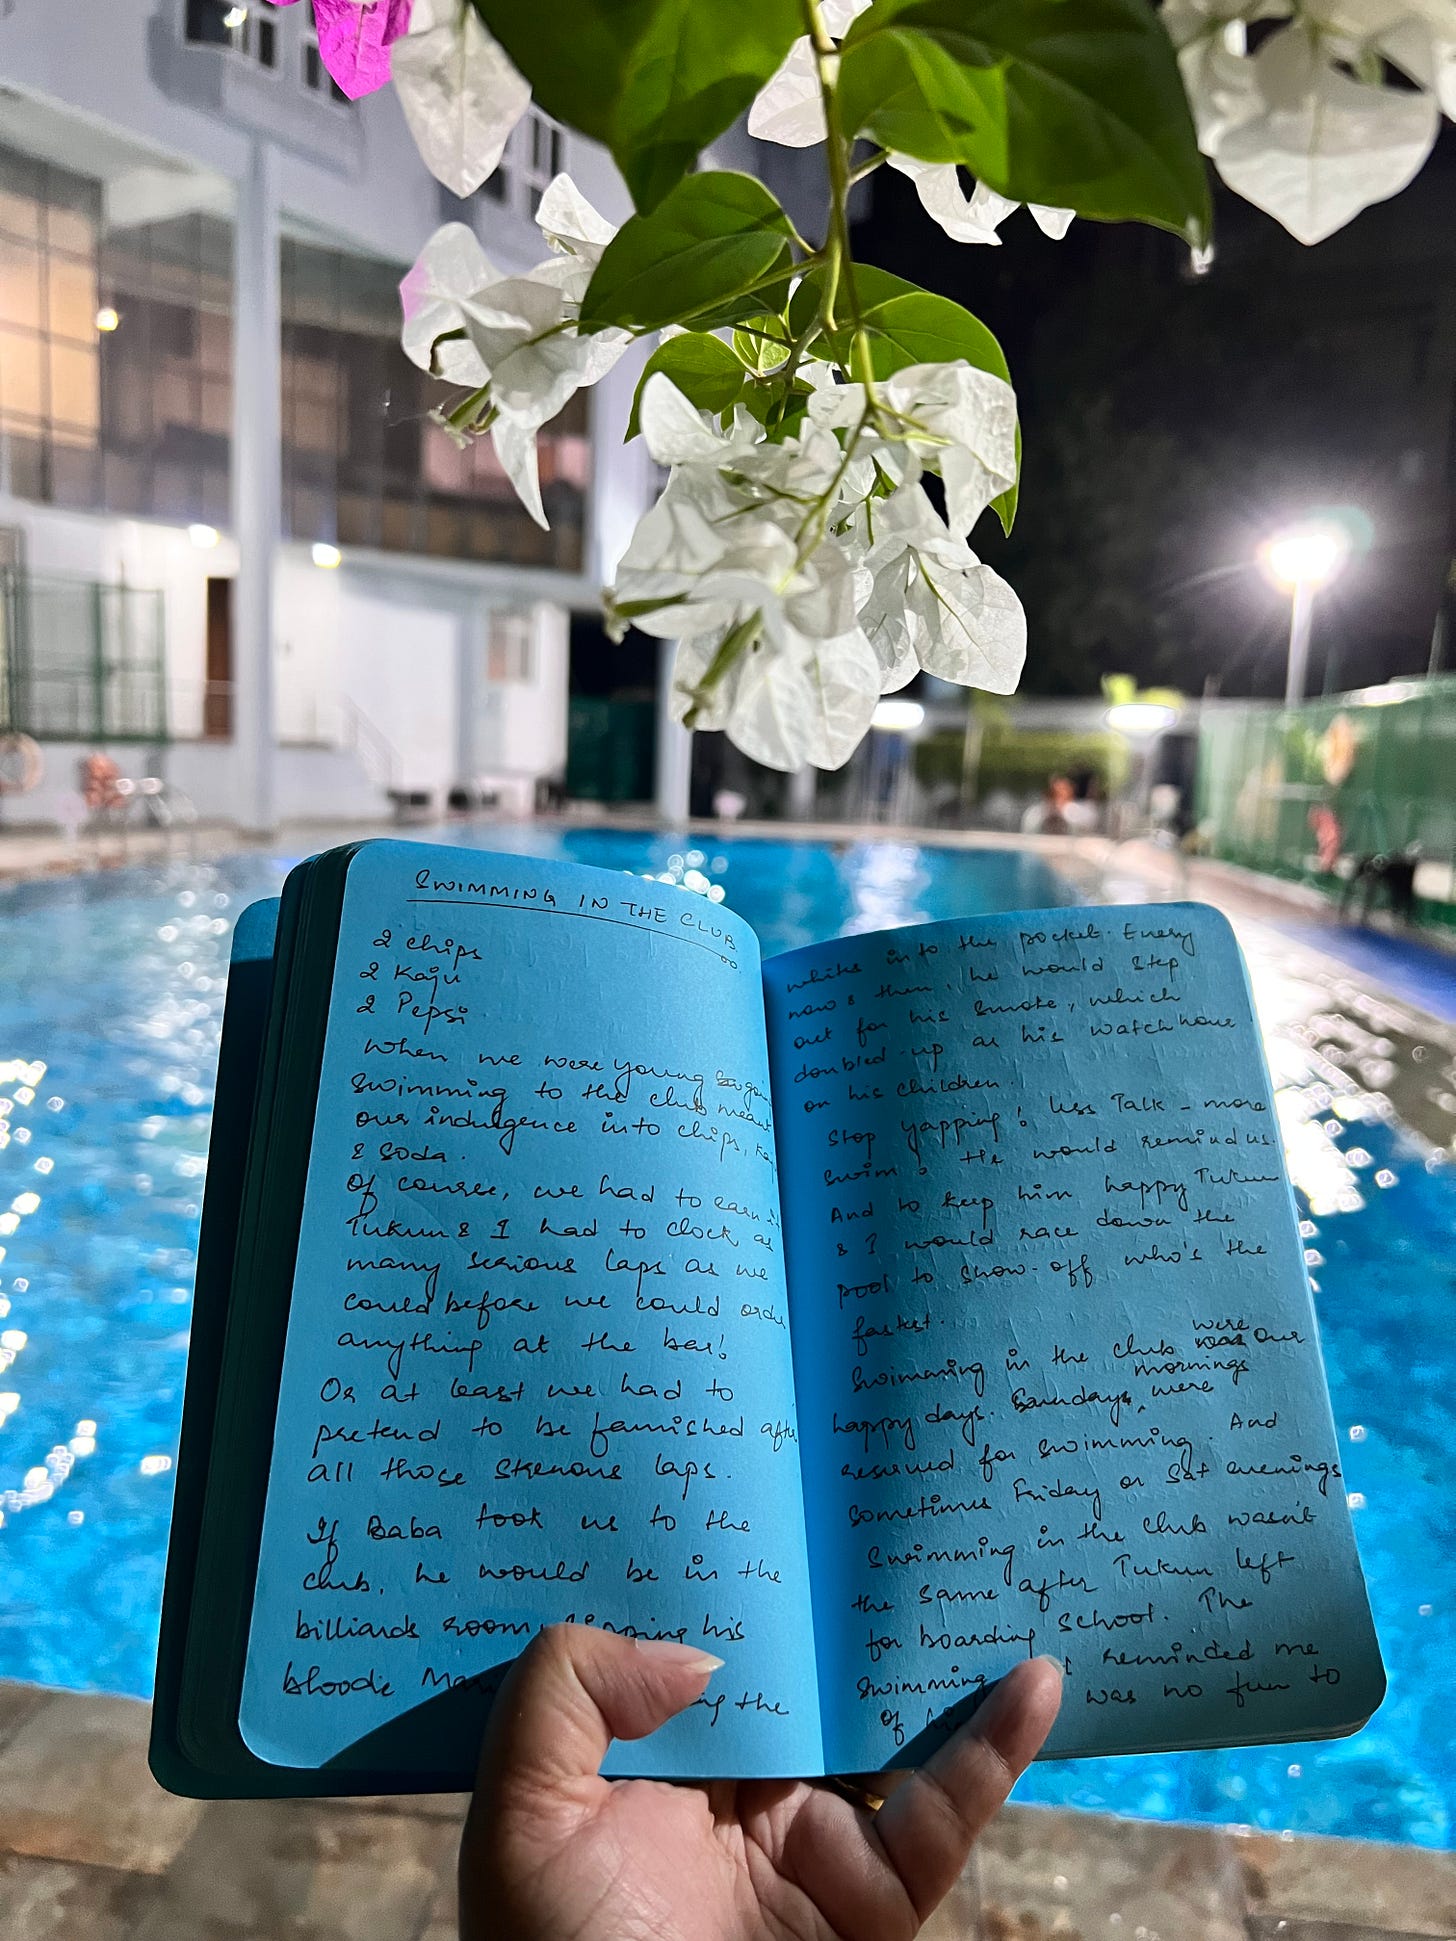 SWIMMING IN THE CLUB
2 chips
2 Kaju
2 Pepsi
When we were young
swimming to the club meant
our indulgence into chips,
& soda.
Of course, we had to earn it
Tukun & I had to clock as
many serious laps as we
could before we could order
anything at the bar!
Or at least we had to
pretend to be famished after
all those strenous laps.
If Baba took us to the
club, he would be in the
billiards room, his
bloodie the
whites into the pocket. Every
now & then, he would step
out for his smoke, which
doubled-up as his watch hour
on his children.
Stop yapping! less Talk - more
swim. He would remind us.
And to keep him happy Tukun
& I would race down the
pool to show-off who's the
fastest.
Swimming in the club were our
happy days. Sundays mornings were
reserved for swimming. And
sometimes Friday or Sat evenings
Swimming in the club wasn't
the same after Tukun left
for boarding school. The
swimming reminded me
of was no fun to